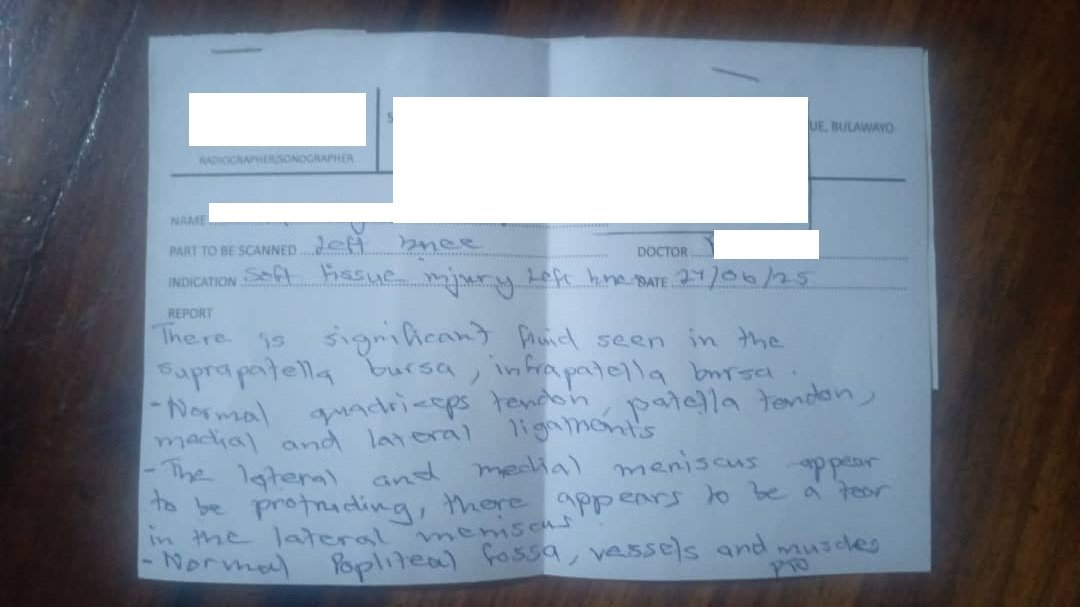 UE, BULAWAYO
RADIOGRAPHER/SONOGRAPHER
NAME
PART TO BE SCANNED Left knee DOCTOR
INDICATION Soft tissue injury Left knee DATE 27/06/25
REPORT
There is significant fluid seen in the
suprapatella bursa, infrapatella bursa.
-Normal quadriceps tendon, patella tendon,
medial and lateral ligaments
-The lateral and medial meniscus appear
to be protruding, there appears to be a tear
in the lateral meniscus.
-Normal Popliteal fossa, vessels and muscles
PTO